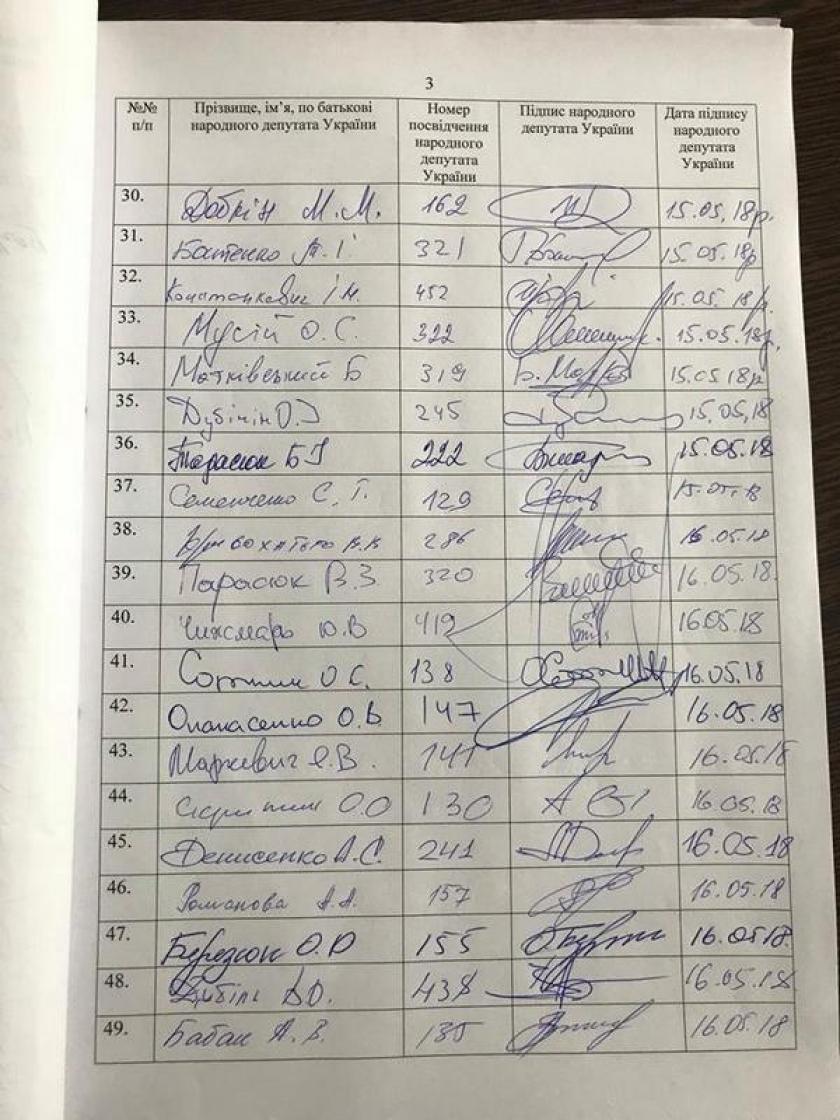 3
№№ п/п Прізвище, ім'я, по батькові народного депутата України Номер посвідчення народного депутата України Підпис народного депутата України Дата підпису народного депутата України
30. Добкін М.М. 162 15.05.18р.
31. 321 15.05.18р
32. 452 15.05.18р.
33. Мусій О.С. 322 15.05.18р.
34. Матківський Б 319 Б. 15.05 18р
35. Дубінін О.І 245 15.05.18
36. Тарасюк Б І 222 15.05.18
37. Семенченко С. І. 129 15.05.18
38. В.В 286 16.05.18
39. Парасюк В.З. 320 16.05.18.
40. Чижмарь Ю.В 419 16.05.18
41. О С. 138 16.05.18
42. Опанасенко О.В 147 16.05.18
43. Маркевич Я.В. 141 16.05.18
44. О.О 130 16 05.18
45. Денисенко А.С. 241 16.05.18
46. Романова А.А. 157 16.05.18
47. Березюк О.Р 155 16.05.18.
48. 438 16.05.18
49. Бабак А.В. 135 16.05.18